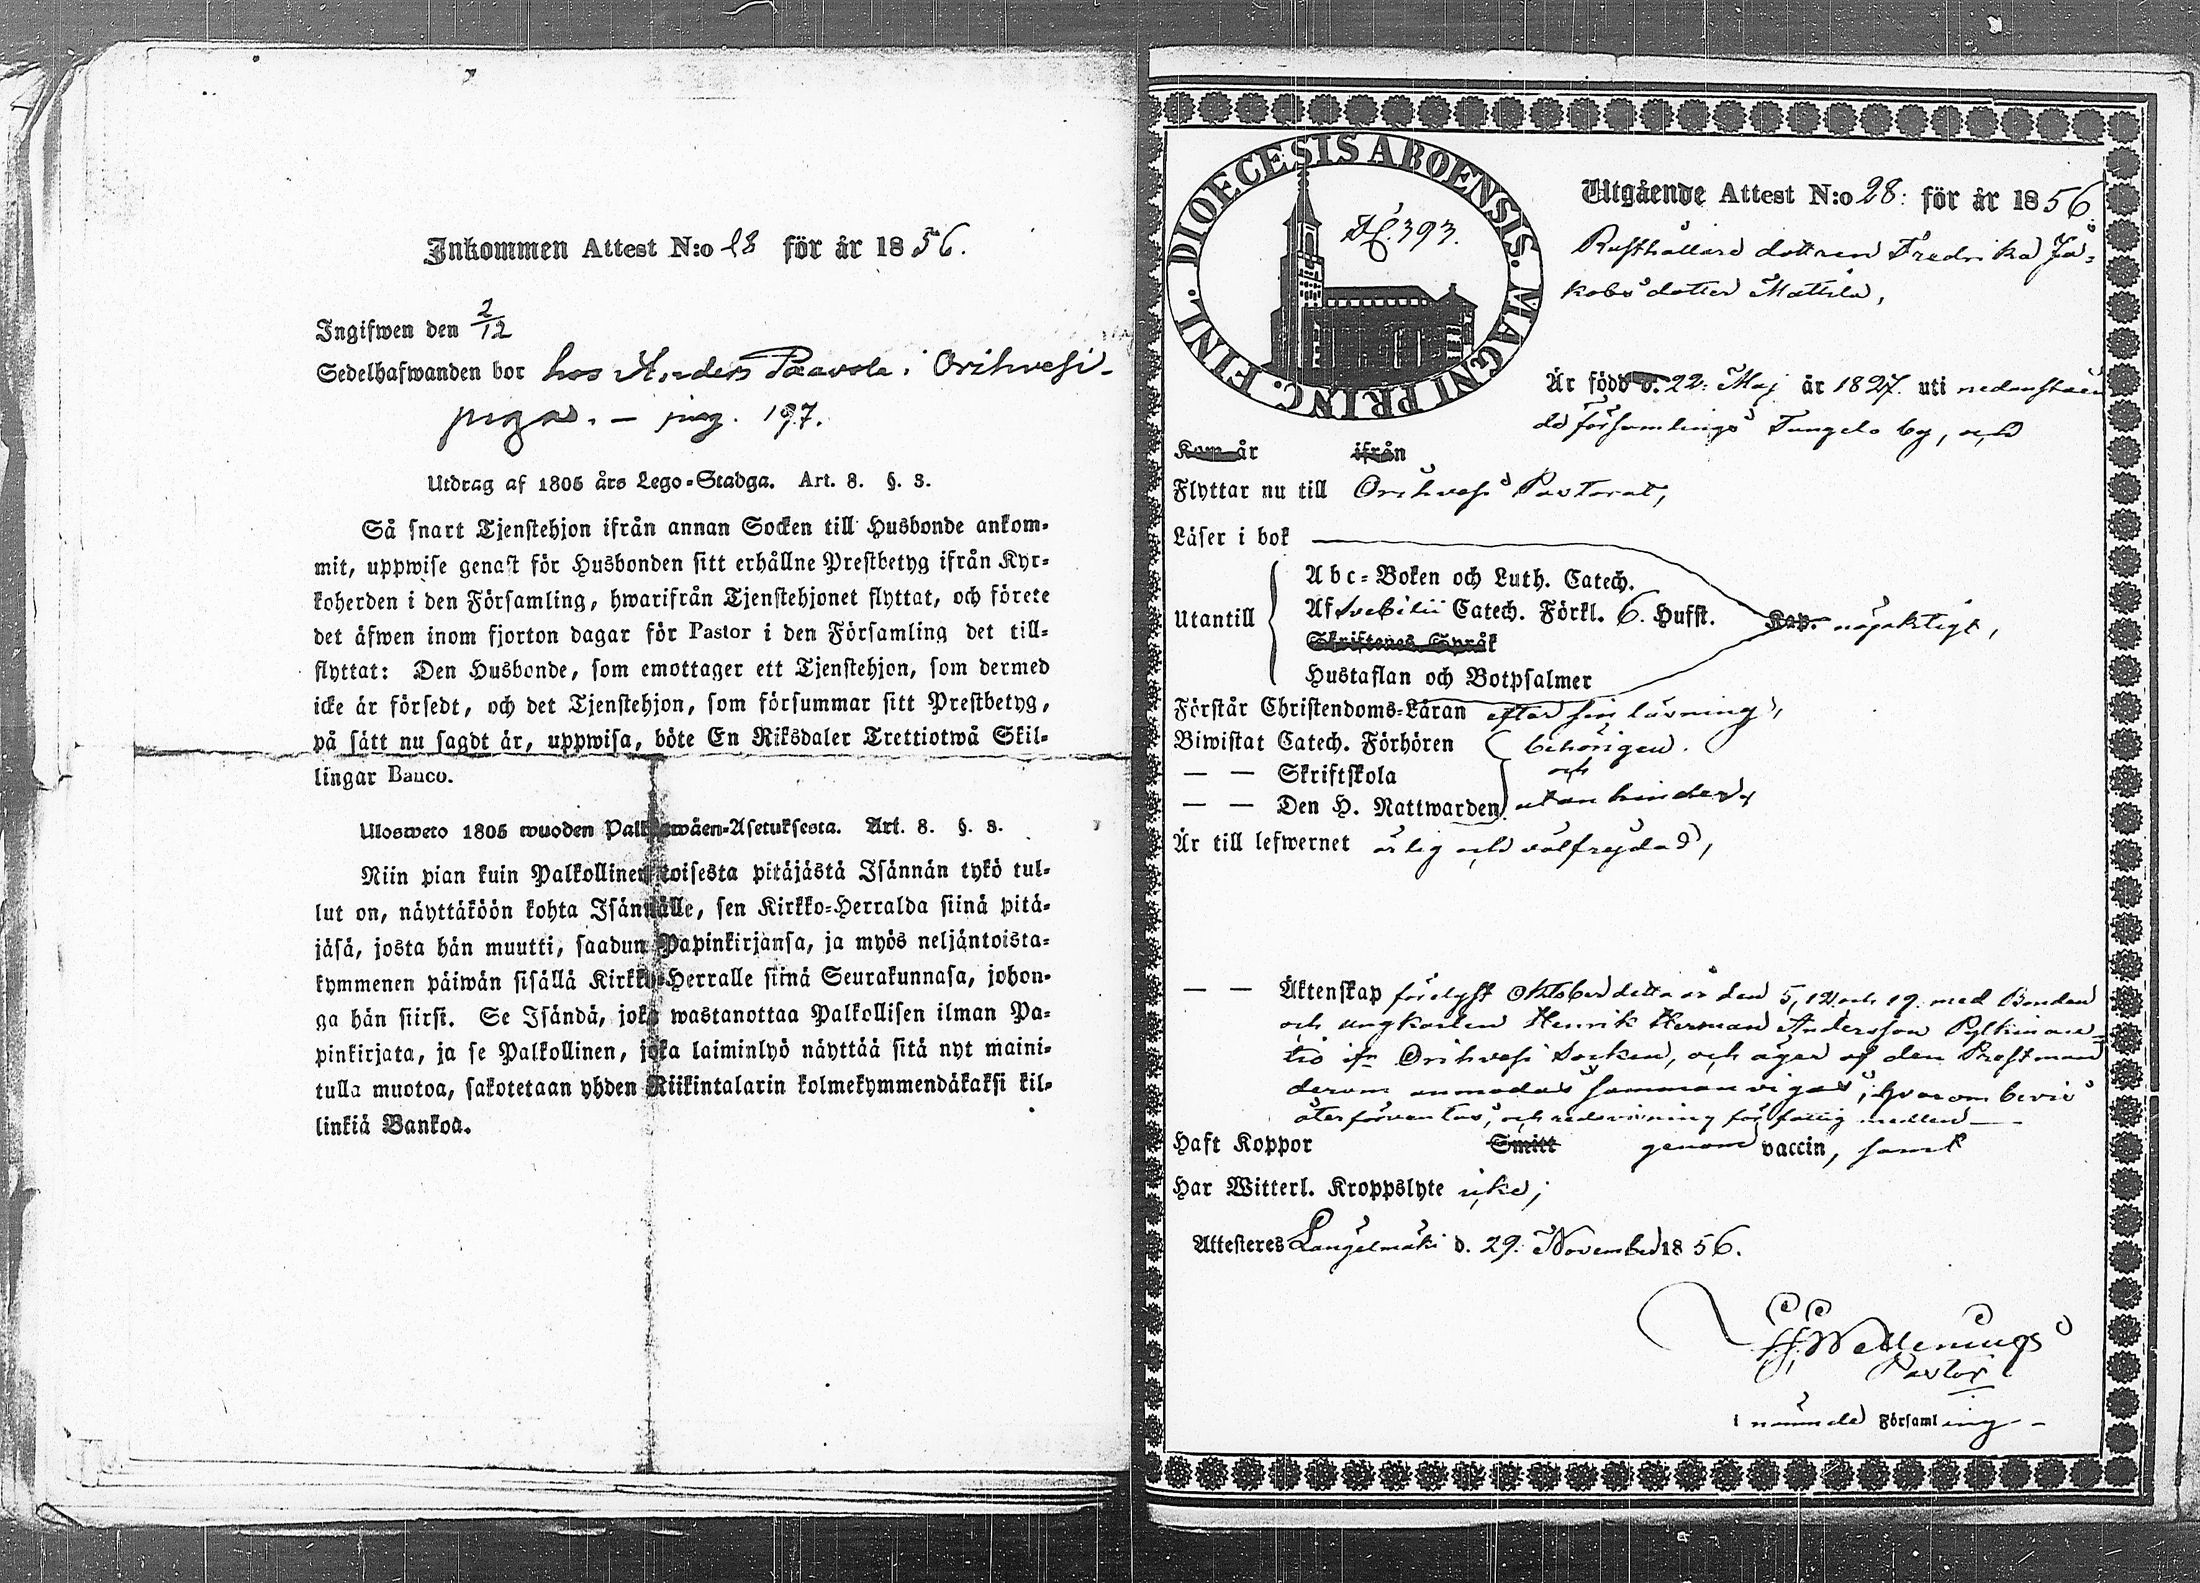 Inkommen Attest N:o 28 för år 1856.
Ingifwen den 2/12
Sedelhafwanden bor hos Anders Paavola i Orihvesi
piga. – pag. 197.
Utdrag af 1805 års Lego-Stadga. Art. 8. §. 3.
Så snart Tjenstehjon ifrån annan Socken till Husbonde ankom-
mit, uppwise genast för Husbonden sitt erhållne Prestbetyg ifrån Kyr-
koherden i den Församling, hwarifrån Tjenstehjonet flyttat, och förete
det äfwen inom fjorton dagar för Pastor i den Församling det till-
flyttat: Den Husbonde, som emottager ett Tjenstehjon, som dermed
icke är försedt, och det Tjenstehjon, som försummar sitt Prestbetyg,
på sätt nu sagdt är, uppwisa, böte En Riksdaler Trettiotwå Skil-
lingar Banco.
Ulosweto 1805 wuoden Palkkawäen-Asetuksesta. Art. 8. §. 3.
Niin pian kuin Palkollinen toisesta pitäjästä Isännän tykö tul-
lut on, näyttäköön kohta Isännälle, sen Kirkko-Herralda siinä pitä-
jäsä, josta hän muutti, saadun Papinkirjansa, ja myös neljäntoista-
kymmenen päiwän sisällä Kirkko-Herralle siinä Seurakunnasa, johon-
ga hän siirsi. Se Isändä, joka wastanottaa Palkollisen ilman Pa-
pinkirjata, ja se Palkollinen, joka laiminlyö näyttää sitä nyt maini-
tulla muotoa, sakotetaan yhden Riikintalarin kolmekymmendäkaksi kil-
linkiä Bankoa.
DIOECESIS ABOENSIS. MAGNI PRINC. FINL.
393.
Utgående Attest N:o 28: för år 1856.
Rusthållare dottren Fredrika Ja-
kobsdotter Mattila,
Är född d. 22. Maj år 1827. uti nedanståen
de församlings by, och
Kom år ifrån
Flyttar nu till Orihvesi Pastorat,
Läser i bok
Utantill
Abc-Boken och Luth. Catech.
Af Svebilii Catech. Förkl. 6. Hufst. Kap. nöjaktigt,
Skriftenes Språk
Hustaflan och Botpsalmer
Förstår Christendoms-Läran efter sin lärning,
Biwistat Catech. Förhören behörigen.
— — Skriftskola och
— — Den H. Nattwarden utan hinder,
Är till lefwernet ärlig och välfrejdad,
— — Äktenskap förelyst Oktober detta år den 5, 12 och 19. med Bondan
och ungkarlen Henrik Herman Andersson
ifr Orihvesi Socken, och äger af den Prestman
derom anmodas sammanvigas, hvarom bevis
återförväntas, och redovisning för fattig medlen —
Haft Koppor Smitt genom vaccin, samt
Har Witterl. Kroppslyte icke;
Attesteres Längelmäki d. 29. November 1856.
Pastor
i nämnde Församling –